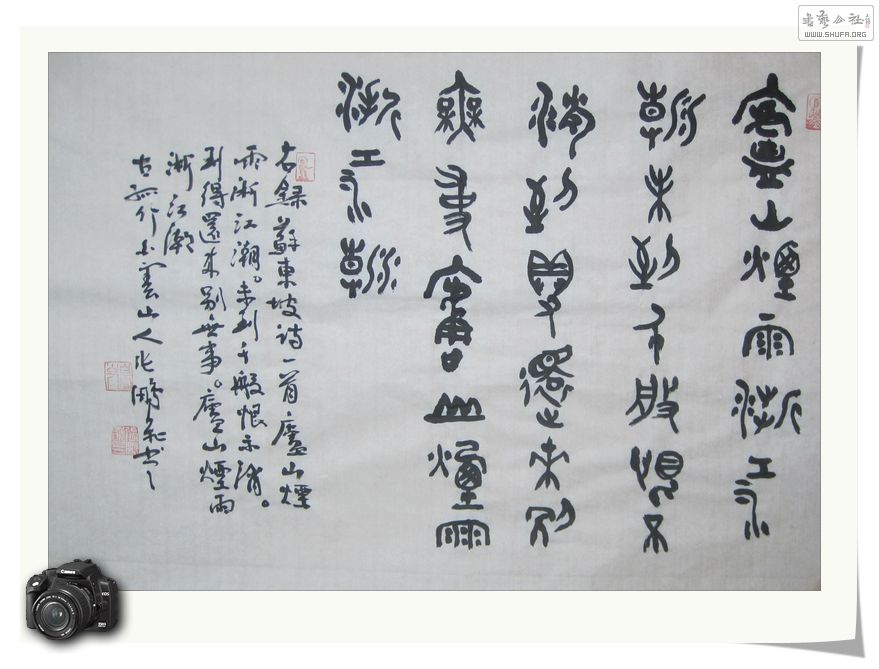 廬山煙雨浙江
潮未到千般恨不
消到得還來別
無事廬山煙雨
浙江潮
右録蘇東坡詩一首廬山煙
雨浙江潮。未到千般恨不消。
到得還来别無事。廬山煙雨
浙江潮
雲山人
书艺公社
WWW.SHUFA.ORG
Canon
EOS